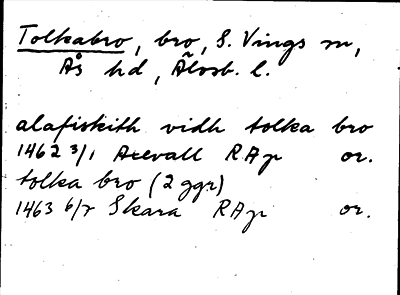 Tolkabro, bro, S. Vings sn,
Ås hd, Älvsb. l.
alafiskith vidh tolka bro
1462 3/1 Arevall RAp or.
tolka bro (2 ggr)
1463 6/2 Skara RAp or.